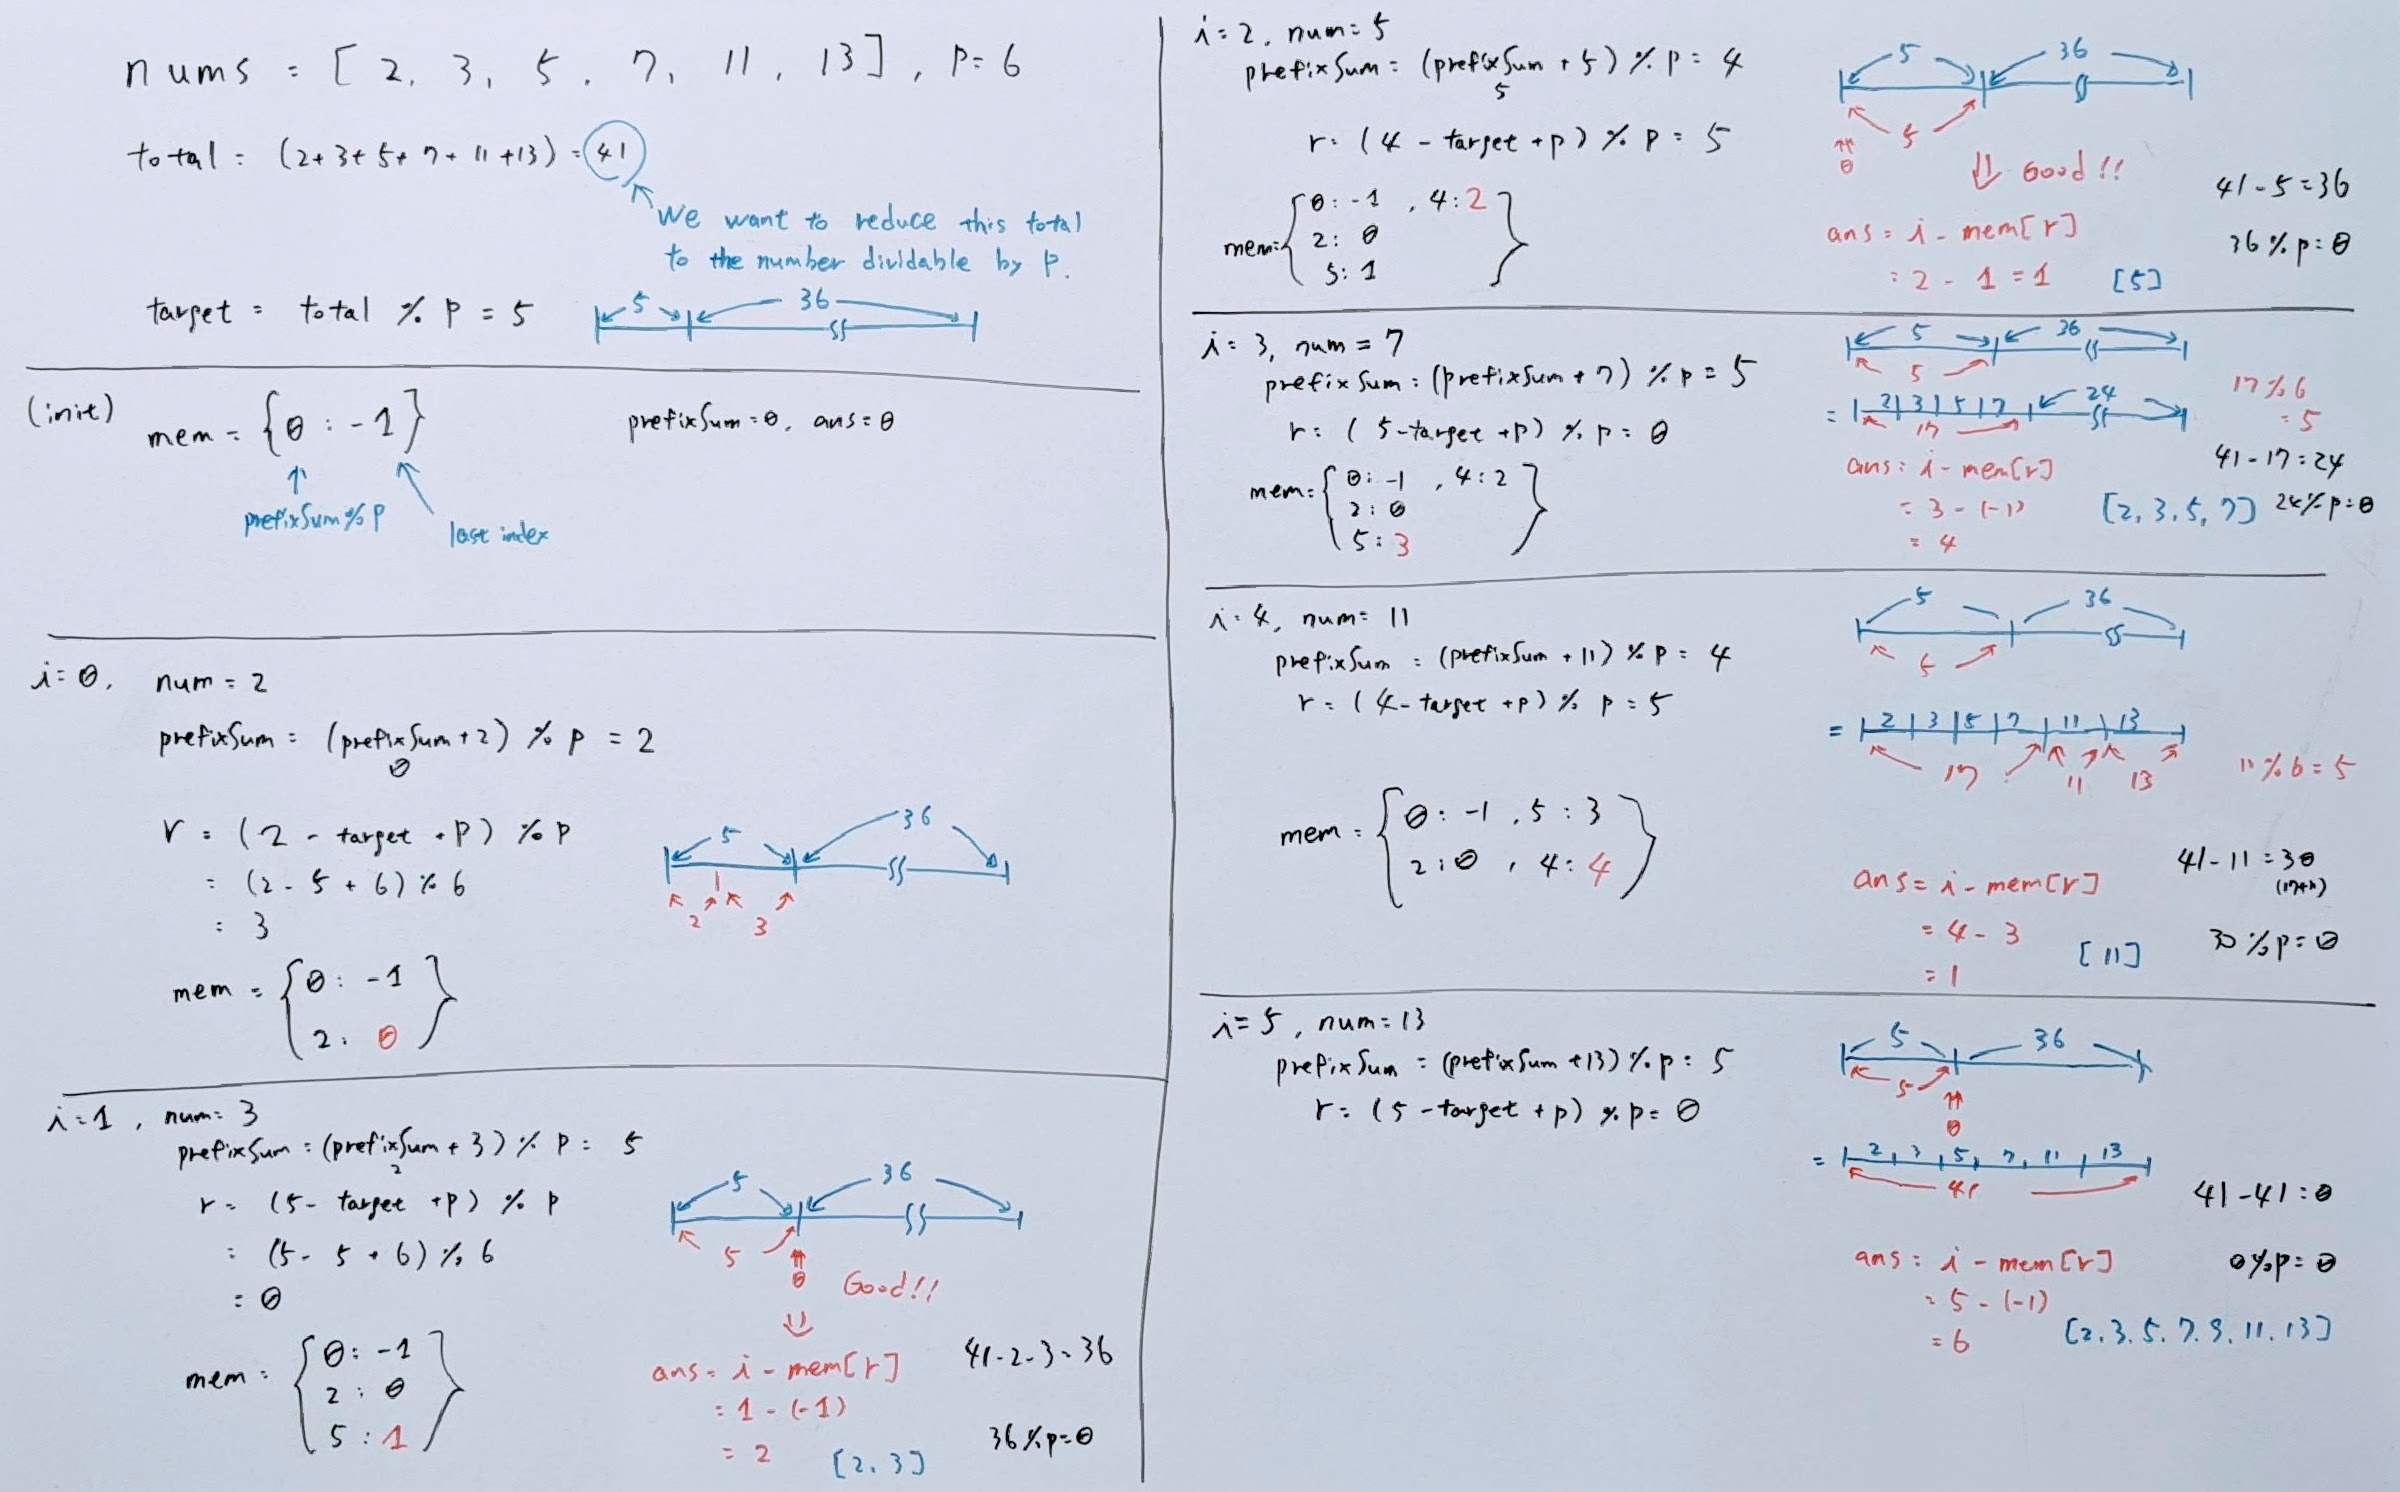 nums = [ 2, 3, 5, 7, 11, 13 ], p = 6
total = (2+3+5+7+11+13) = 41
We want to reduce this total
to the number dividable by P.
target = total % P = 5
5 36
(init)
mem = {0 : -1}
prefixSum = 0, ans = 0
prefixSum%P
last index
i = 0, num = 2
prefixSum = (prefixSum+2) % P = 2
0
r = (2 - target + P) % P
= (2 - 5 + 6) % 6
= 3
5 36
2 3
mem = {0 : -1
2 : 0}
i = 1, num = 3
prefixSum = (prefixSum + 3) % P = 5
2
r = (5 - target + P) % P
= (5 - 5 + 6) % 6
= 0
5 36
5
0
Good!!
mem = {0 : -1
2 : 0
5 : 1}
ans = i - mem[r]
= 1 - (-1)
= 2
[2, 3]
41-2-3=36
36%p=0
i = 2, num = 5
prefixSum = (prefixSum + 5) % P = 4
5
r = (4 - target + p) % P = 5
mem = {0 : -1 , 4 : 2
2 : 0
5 : 1}
5 36
5
0
Good!!
ans = i - mem[r]
= 2 - 1 = 1
[5]
41-5=36
36%p=0
i = 3, num = 7
prefixSum = (prefixSum + 7) % P = 5
r = (5-target+p) % P = 0
mem = {0 : -1 , 4 : 2
2 : 0
5 : 3}
5 36
5
= 2 3 5 7 24
17
17%6
= 5
ans = i - mem[r]
= 3 - (-1)
= 4
[2, 3, 5, 7]
41-17=24
24%p=0
i = 4, num = 11
prefixSum = (prefixSum + 11) % P = 4
r = (4 - target + p) % P = 5
mem = {0 : -1 , 5 : 3
2 : 0 , 4 : 4}
5 36
5
= 2 3 5 7 11 13
17 11 13
11%6=5
ans = i - mem[r]
= 4 - 3
= 1
[11]
41-11=30
30%p=0
i = 5, num = 13
prefixSum = (prefixSum + 13) % p = 5
r = (5 - target + p) % p = 0
5 36
5
0
= 2 3 5 7 11 13
41
ans = i - mem[r]
= 5 - (-1)
= 6
[2, 3, 5, 7, 9, 11, 13]
41-41=0
0%p=0